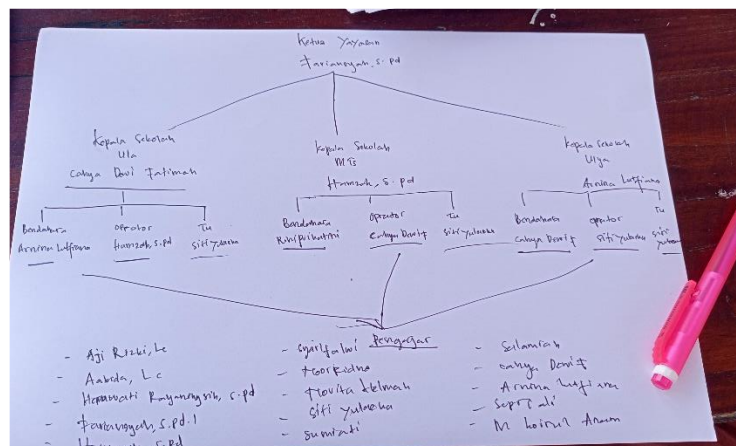 Ketua Yayasan
Fariansyah, S.pd
Kepala Sekolah
Ula
Cahya Dewi Fatimah
Kepala Sekolah
MTs
Hamzah, S.pd
Kepala Sekolah
Ulya
Arnina Lutfiana
Bendahara
Arnina Lutfiana
operator
Hamzah, S.pd
Tu
Siti Yulaeha
Bendahara
operator
Cahya Dewi F
Tu
Siti Yulaeha
Bendahara
Cahya Dewi F
operator
Siti Yulaeha
Tu
Siti
Pengajar
- Aji Rizki, Lc
- Lc
- Rayaningsih, S.pd
- Fariansyah, S.pd.I
S.pd
- Noorkidna
- Novita
- Siti Yulaeha
- Sumiati
- Salamiah
- Cahya Dewi F
- Arnina Lutfiana
- Sapri Ali
- M Anam